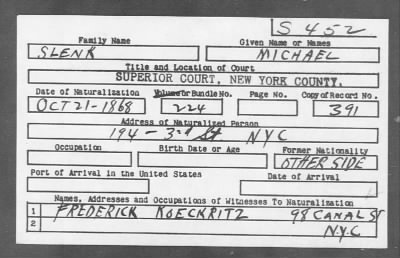 S 452
Family Name Given Name or Names
SLENK MICHAEL
Title and Location of Court
SUPERIOR COURT, NEW YORK COUNTY.
Date of Naturalization Volume or Bundle No. Page No. Copy of Record No.
OCT 21-1868 224 391
Address of Naturalized Person
194 - 3rd St NYC
Occupation Birth Date or Age Former Nationality
OTHER SIDE
Port of Arrival in the United States Date of Arrival
Names, Addresses and Occupations of Witnesses To Naturalization
1 FREDERICK KOECKRITZ 98 CANAL ST
2 N.Y.C